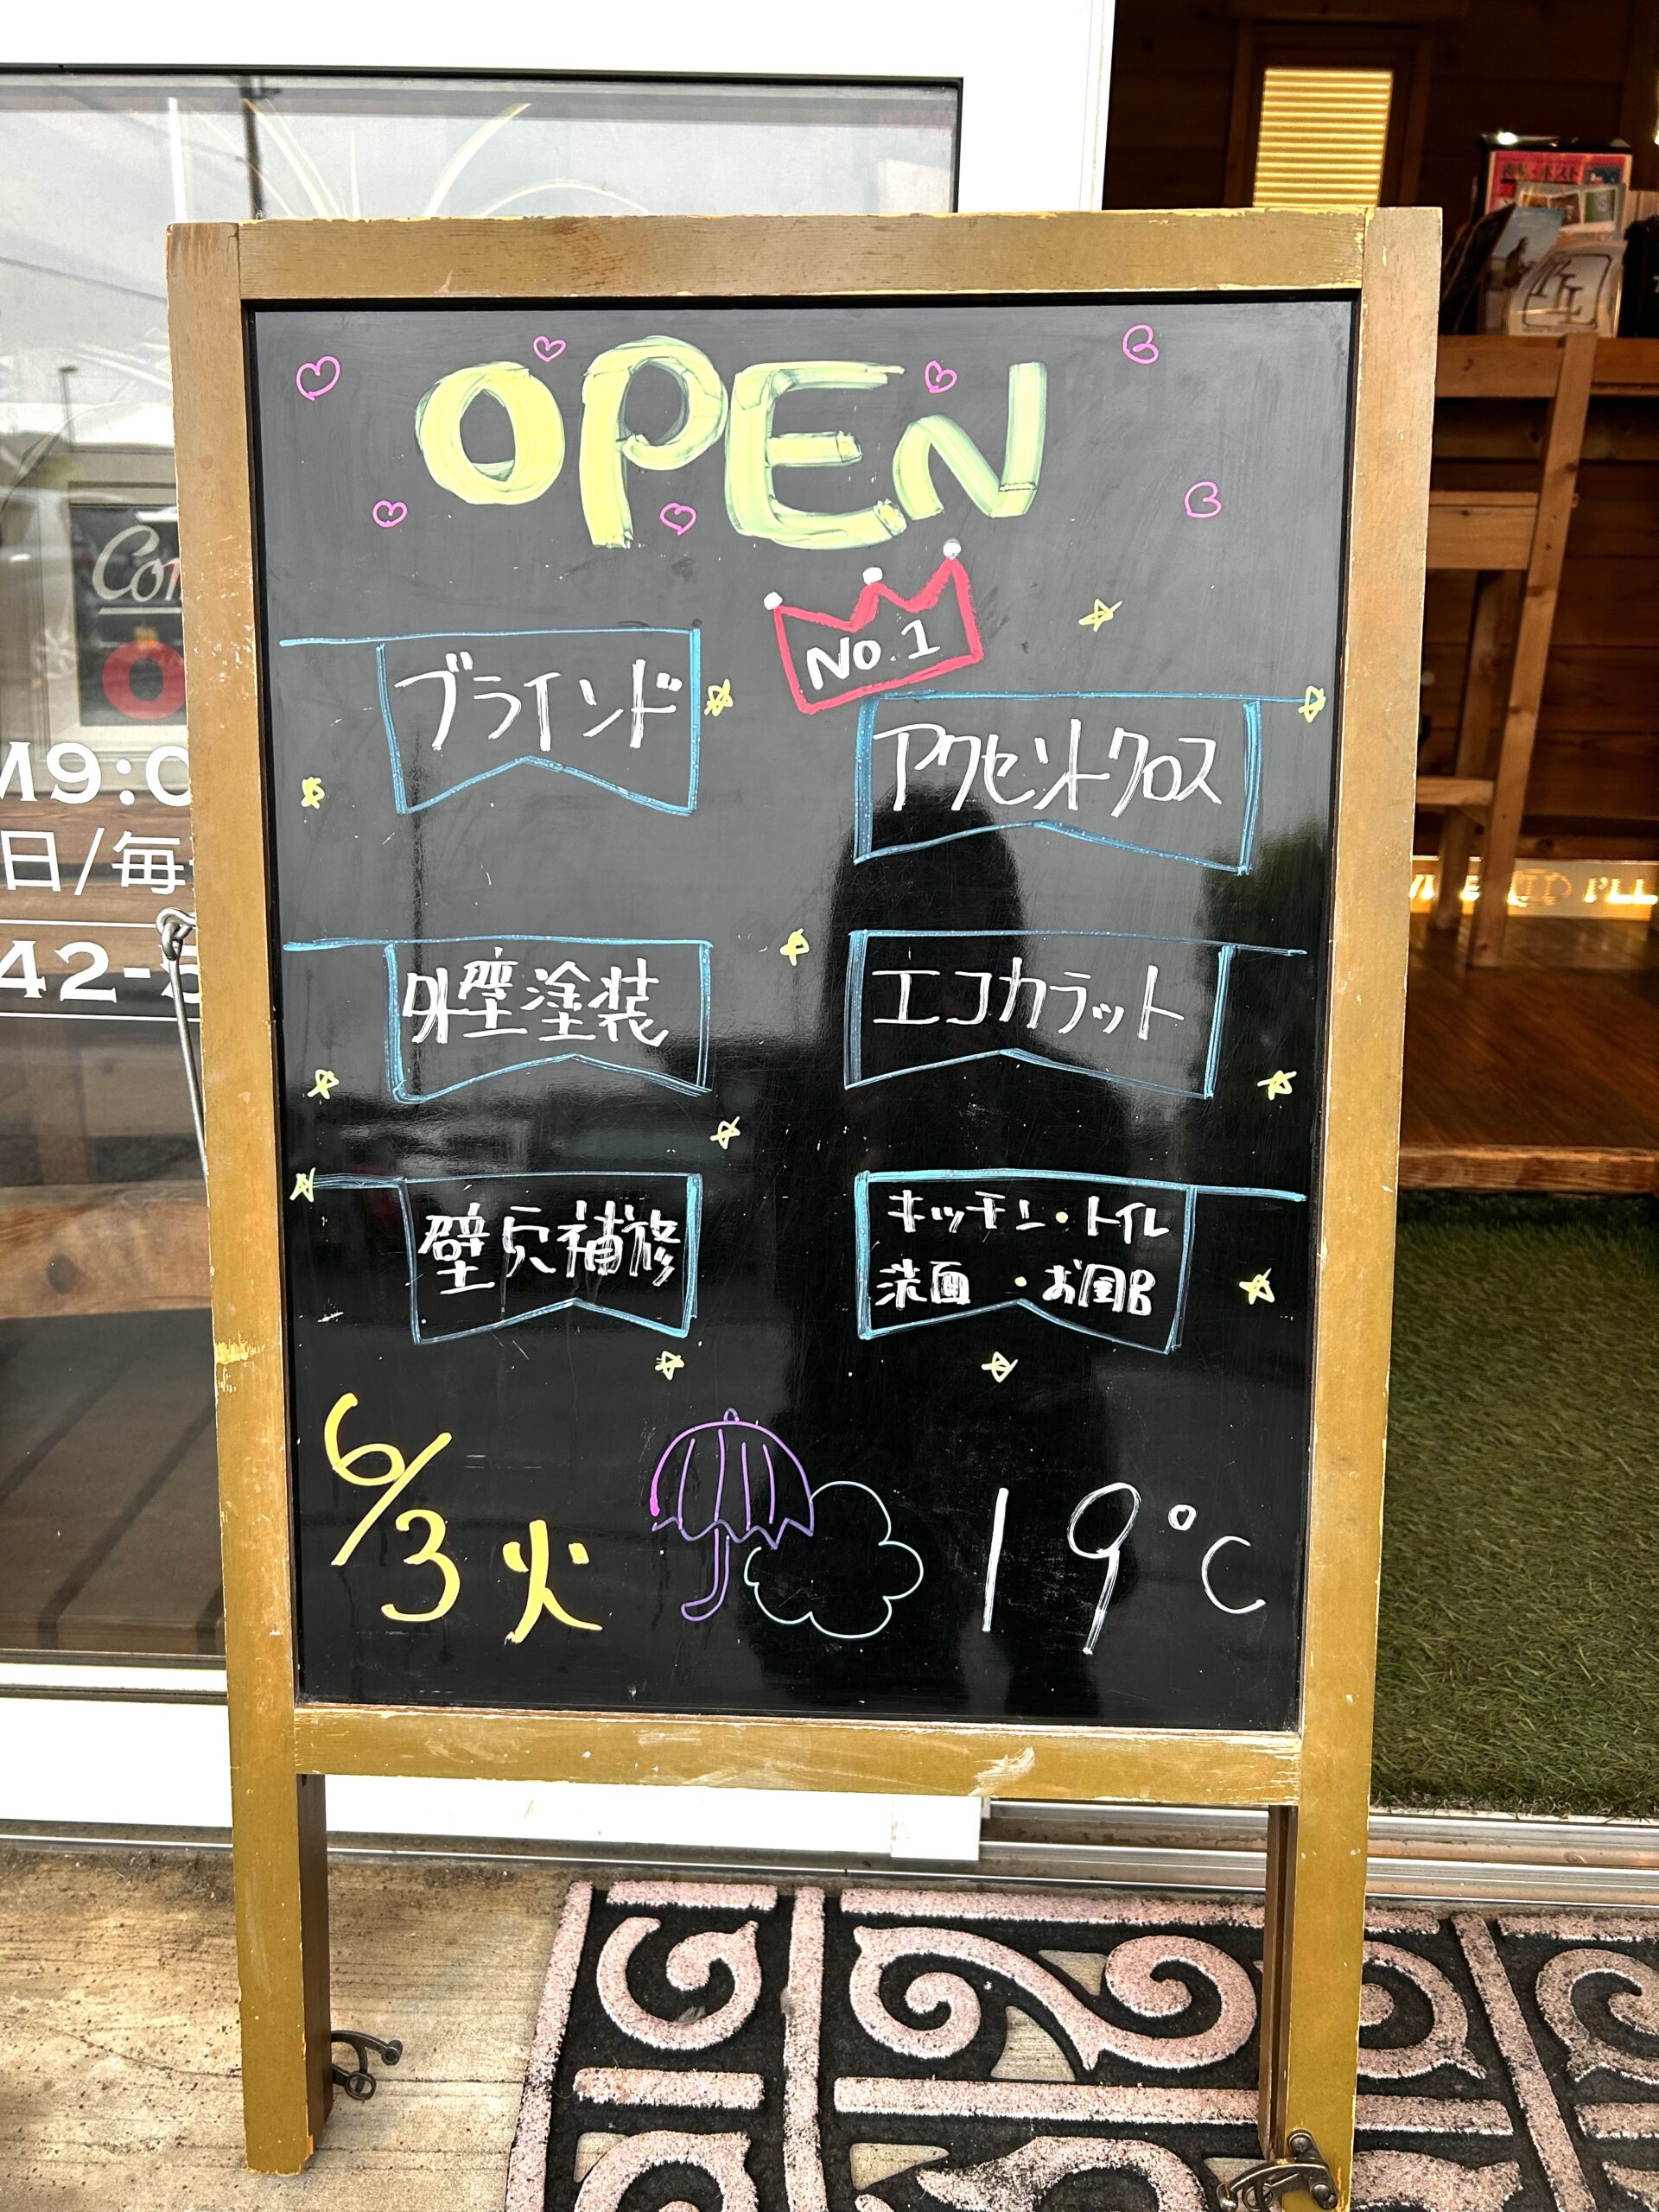 OPEN
No.1
ブラインド
アクセントクロス
外壁塗装
エコカラット
壁穴補修
キッチン・トイレ
洗面・お風呂
6/3 火
19℃
M9:0
日/毎
42-5